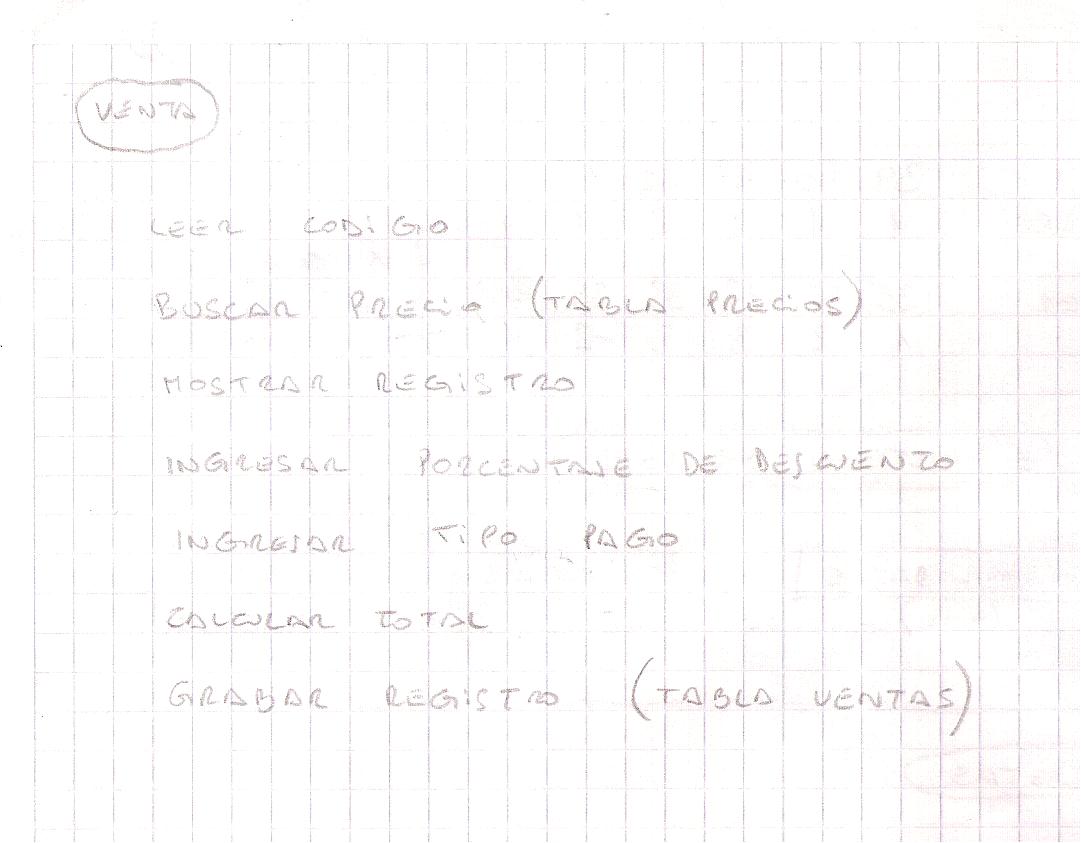 VENTA
LEER CODIGO
BUSCAR PRECIO (TABLA PRECIOS)
MOSTRAR REGISTRO
INGRESAR PORCENTAJE DE DESCUENTO
INGRESAR TIPO PAGO
CALCULAR TOTAL
GRABAR REGISTRO (TABLA VENTAS)